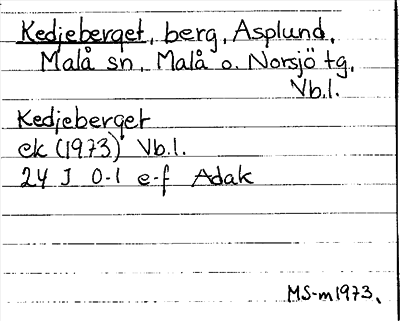 Kedjeberget, berg, Asplund,
Malå sn, Malå o. Norsjö tg,
Vb.l.
Kedjeberget
ek (1973) Vb.l.
24 J 0-1 e-f Adak
MS-m1973.